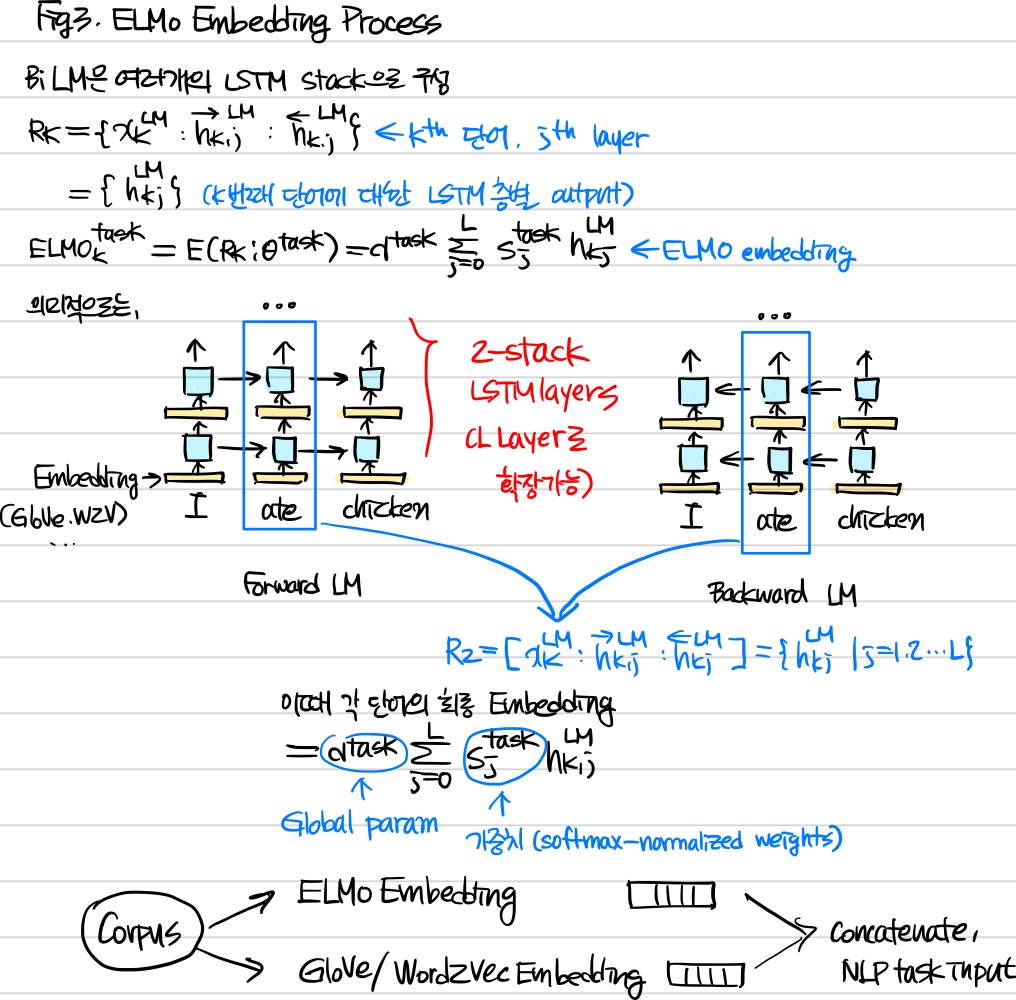 Fig3. ELMo Embedding Process
Bi LM은 여러개의 LSTM stack으로 구성
Rk = {xk^LM : →hk,j^LM : ←hk,j^LM} ← kth 단어, jth layer
= {hkj^LM} (k번째 단어에 대한 LSTM 층별 output)
ELMOk^task = E(Rk ; θ^task) = r^task Σ(j=0, L) sj^task hkj^LM ← ELMO embedding
의미적으로는,
... ...
2-stack
LSTM layers
(L Layer로
확장가능)
Embedding →
(GloVe, W2V)
I ate chicken
I ate chicken
Forward LM
Backward LM
R2 = [xk^LM : →hkj^LM : ←hkj^LM] = {hkj^LM | j=1,2...L}
이때 각 단어의 최종 Embedding
= r^task Σ(j=0, L) sj^task hkj^LM
Global param
가중치 (softmax-normalized weights)
ELMo Embedding
Corpus
concatenate,
NLP task Input
GloVe/Word2Vec Embedding